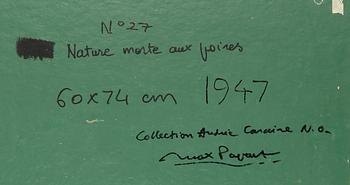 N° 27
Nature morte aux poires
60x74 cm 1947
Collection N.O.
Max Papart